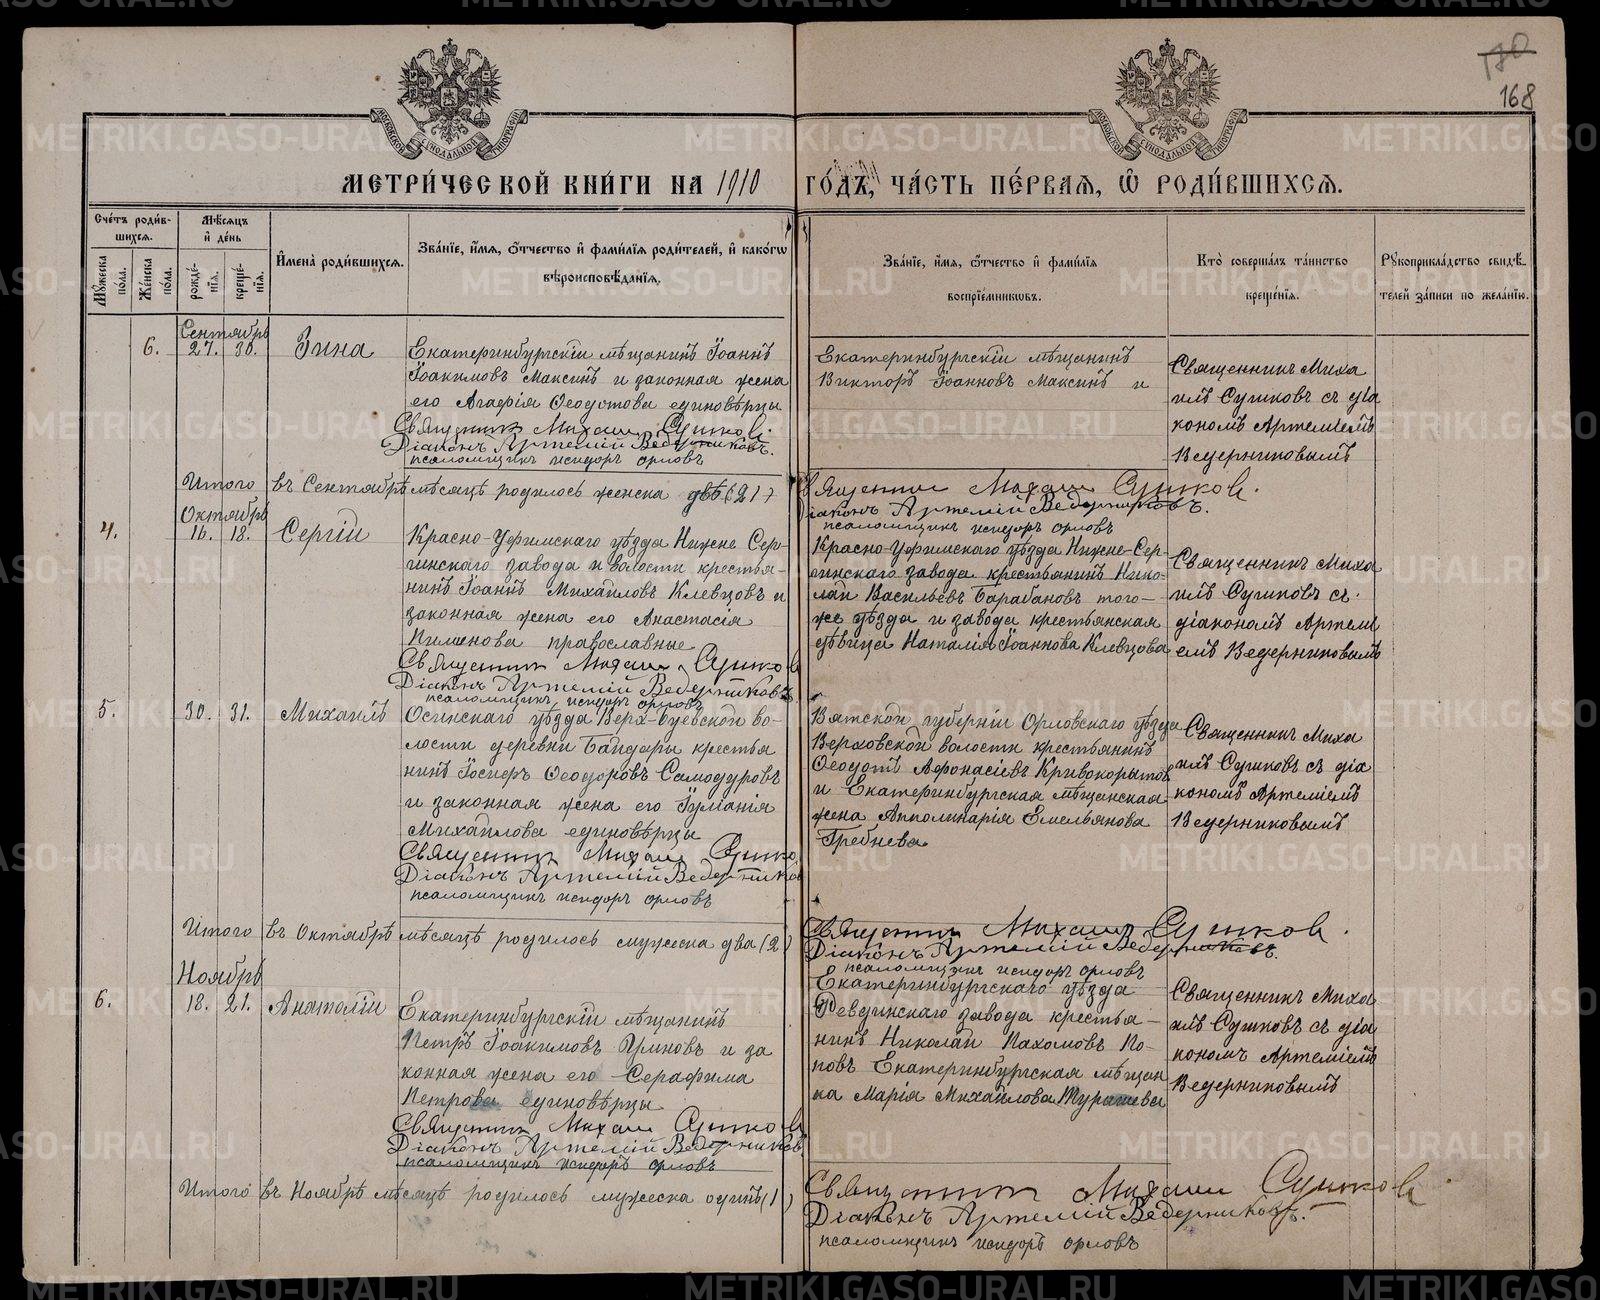 180
168
МОСКОВСКОЙ СѴНОДАЛЬНОЙ ТИПОГРАФІИ
МОСКОВСКОЙ СѴНОДАЛЬНОЙ ТИПОГРАФІИ
МЕТРИ́ЧЕСКОЙ КНИ́ГИ НА 1910 ГО́ДЪ, ЧА́СТЬ ПЕ́РВАЯ, Ѡ РОДИ́ВШИХСЯ.
Сче́тъ роди́вшихся.
Му́жеска по́ла.
Же́нска по́ла.
Мѣ́сяцъ и҆ де́нь
рожде́нїя.
креще́нїя.
И҆мена̀ роди́вшихся.
Зва́нїе, и҆́мя, о҆́тчество и҆ фами́лїя роди́телей, и҆ како́гѡ
вѣроисповѣ́данїя.
Зва́нїе, и҆́мя, о҆́тчество и҆ фами́лїя
воспрїе́мникѡвъ.
Кто̀ соверша́лъ та́инство
креще́нїя.
Рꙋкоприкла́дство свидѣ́-
телей за́писи по жела́нїю.
Сентябрь
6. 27. 30. Зина
Екатеринбургскій мѣщанинъ Іоаннъ
Іоакимовъ Максинъ и законная жена
его Агафія Ѳеодотова единовѣрцы
Священник Михаил Сушков.
Діаконъ Артемій Ведерниковъ.
псаломщикъ исидоръ орловъ
Екатеринбургскій мѣщанинъ
Викторъ Іоанновъ Максинъ и
Священникъ Миха
илъ Сушковъ съ діа
кономъ Артеміемъ
Ведерниковымъ
Итого въ Сентябрѣ мѣсяцѣ родилось женска двѣ (2)
Священник Михаил Сушков.
Діаконъ Артемій Ведерниковъ.
псаломщикъ исидоръ орловъ
Октябрь
4. 16. 18. Сергій
Красно-Уфимскаго уѣзда Нижне Сер-
гинскаго завода и волости крестья-
нинъ Іоаннъ Михайловъ Клевцовъ и
законная жена его Анастасія
Пименова православные
Священник Михаил Сушков
Діаконъ Артемій Ведерниковъ
псаломщикъ исидоръ орловъ
Красно-Уфимскаго уѣзда Нижне-Сер-
гинскаго завода крестьянинъ Нико-
лай Васильевъ Барабановъ того-
же уѣзда и завода крестьянская
дѣвица Наталія Іоаннова Клевцова
Священникъ Миха
илъ Сушковъ съ
діакономъ Артемі
емъ Ведерниковымъ
5. 30. 31. Михаилъ
Осинскаго уѣзда Верх-Буевской во-
лости деревни Бандары крестья
нинъ Іосифъ Ѳеодоровъ Самодуровъ
и законная жена его Іуліанія
Михайлова единовѣрцы
Священник Михаил Сушков
Діаконъ Артемій Ведерников
псаломщикъ исидоръ орловъ
Вятской губерніи Орловскаго уѣзда
Верховской волости крестьянинъ
Ѳеодотъ Афонасіевъ Кривокорытовъ
и Екатеринбургская мѣщанская
жена Апполинарія Емельянова
Гребнева
Священникъ Миха
илъ Сушковъ съ діа
кономъ Артеміемъ
Ведерниковымъ
Итого въ Октябрѣ мѣсяцѣ родилось мужеска два (2)
Священник Михаил Сушков.
Діаконъ Артемій Ведерниковъ.
псаломщикъ исидоръ орловъ
Ноябрь
6. 18. 21. Анатолій
Екатеринбургскій мѣщанинъ
Петръ Іоакимовъ и за
конная жена его Серафима
Петрова единовѣрцы
Священник Михаил Сушков
Діаконъ Артемій Ведерников
псаломщикъ исидоръ орловъ
Екатеринбургскаго уѣзда
Ревдинскаго завода крестья-
нинъ Николай Пахомовъ По-
повъ Екатеринбургская мѣщан
ка Марія Михайлова
Священникъ Миха
илъ Сушковъ съ діа
кономъ Артеміемъ
Ведерниковымъ
Итого въ Ноябрѣ мѣсяцѣ родилось мужеска одинъ (1)
Священник Михаил Сушков.
Діаконъ Артемій Ведерниковъ.
псаломщикъ исидоръ орловъ
METRIKI.GASO-URAL.RU